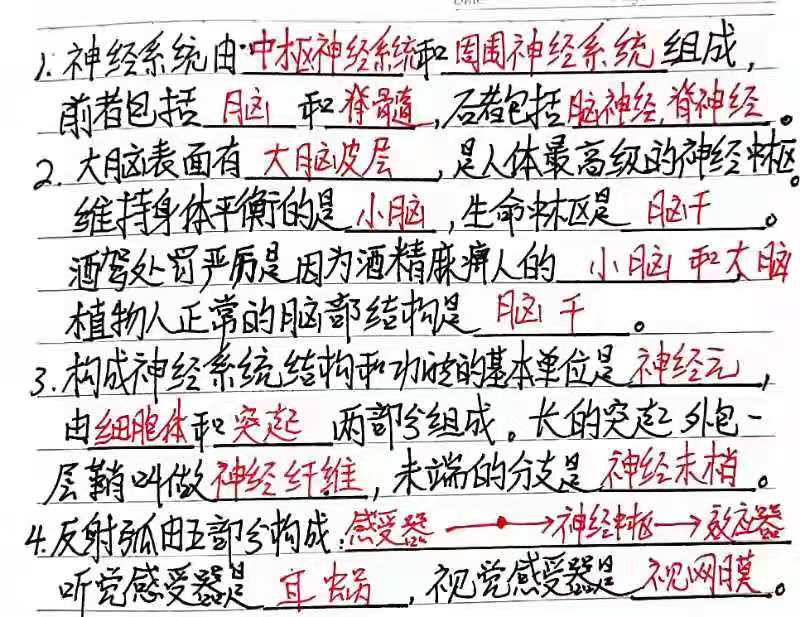 1. 神经系统由中枢神经系统和周围神经系统组成,
前者包括 脑 和 脊髓 ,后者包括脑神经,脊神经。
2. 大脑表面有 大脑皮层 ,是人体最高级的神经中枢。
维持身体平衡的是 小脑 ,生命中枢是 脑干 。
酒驾处罚严厉是因为酒精麻痹人的 小脑和大脑
植物人正常的脑部结构是 脑干 。
3. 构成神经系统结构和功能的基本单位是 神经元 ,
由细胞体和突起 两部分组成。长的突起外包一
层鞘叫做神经纤维 ,末端的分支是 神经末梢 。
4. 反射弧由五部分构成:感受器 —•→神经中枢→效应器
听觉感受器是 耳蜗 ,视觉感受器是 视网膜 。